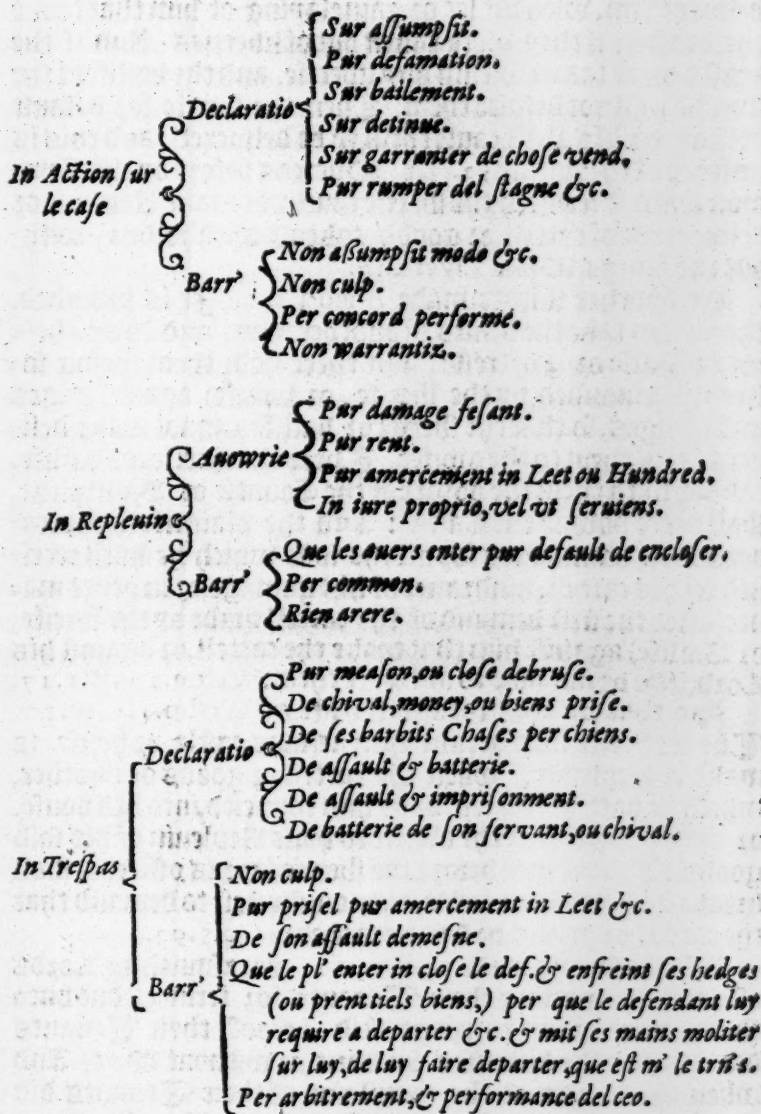 Sur aſſumpſit.
Pur defamation.
Declaratio
Sur bailement.
Sur detinue.
Sur garranter de choſe vend.
In Action ſur
le caſe
Pur rumper del ſtagne &c.
Non aßumpſit modo &c.
Barr'
Non culp.
Per concord performe.
Non warrantiz.
Pur damage feſant.
Auowrie
Pur rent.
Pur amercement in Leet ou Hundred.
In iure proprio, vel vt ſeruiens.
In Repleuin
Que les auers enter pur default de encloſer.
Barr'
Per common.
Rien arere.
Pur meaſon, ou cloſe debruſe.
De chival, money, ou biens priſe.
Declaratio
De ſes barbits Chaſes per chiens.
De aſſault & batterie.
De aſſault & impriſonment.
De batterie de ſon ſervant, ou chival.
In Treſpas
Non culp.
Pur priſel pur amercement in Leet &c.
De ſon aſſault demeſne.
Barr.
Que le pl' enter in cloſe le def. & enfreint ſes hedges
(ou prent tiels biens,) per que le defendant luy
require a departer &c. & mit ſes mains moliter
ſur luy, de luy faire departer, que eſt m' le trñs.
Per arbitrement, & performance del ceo.